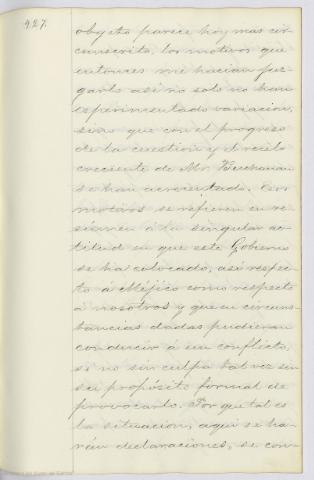 927.
objeto parece hoy mas cir-
cunscrito, los motivos que
entonces me hacían juz-
garlo así no solo no han
experimentado variacion,
sino que con el progreso
de la cuestion y el recelo
creciente de Mr. Buchanan
se han acrecentado. Esos
motivos se refieren en re-
súmen á la singular ac-
titud en que este Gobierno
se ha colocado, así respec-
to á Méjico como respecto
á nosotros y que en circuns-
tancias dadas pudieran
conducir á un conflicto,
si no sin culpa tal vez sin
su propósito formal de
provocarlo. Porque tal es
la situacion, aquí se ha-
rán declaraciones, se con-